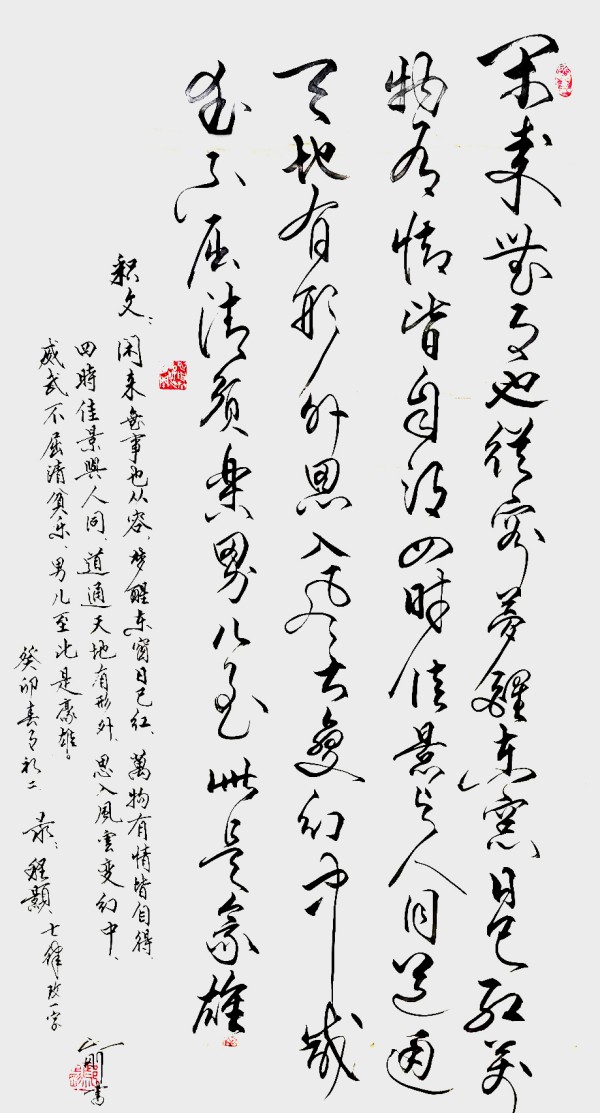 闲来無事也從容夢醒东窗日已红万
物有情皆自得四時佳景与人同道通
天地有形外思入風云變幻中威
武不屈清貧楽男儿至此是豪雄
釈文：闲来無事也从容、梦醒东窗日已红、萬物有情皆自得、
四時佳景與人同、道通天地有形外、思入風雲变幻中、
威武不屈清貧乐、男儿至此是豪雄。
癸卯春月初二 录：程颢、七律改一字
書